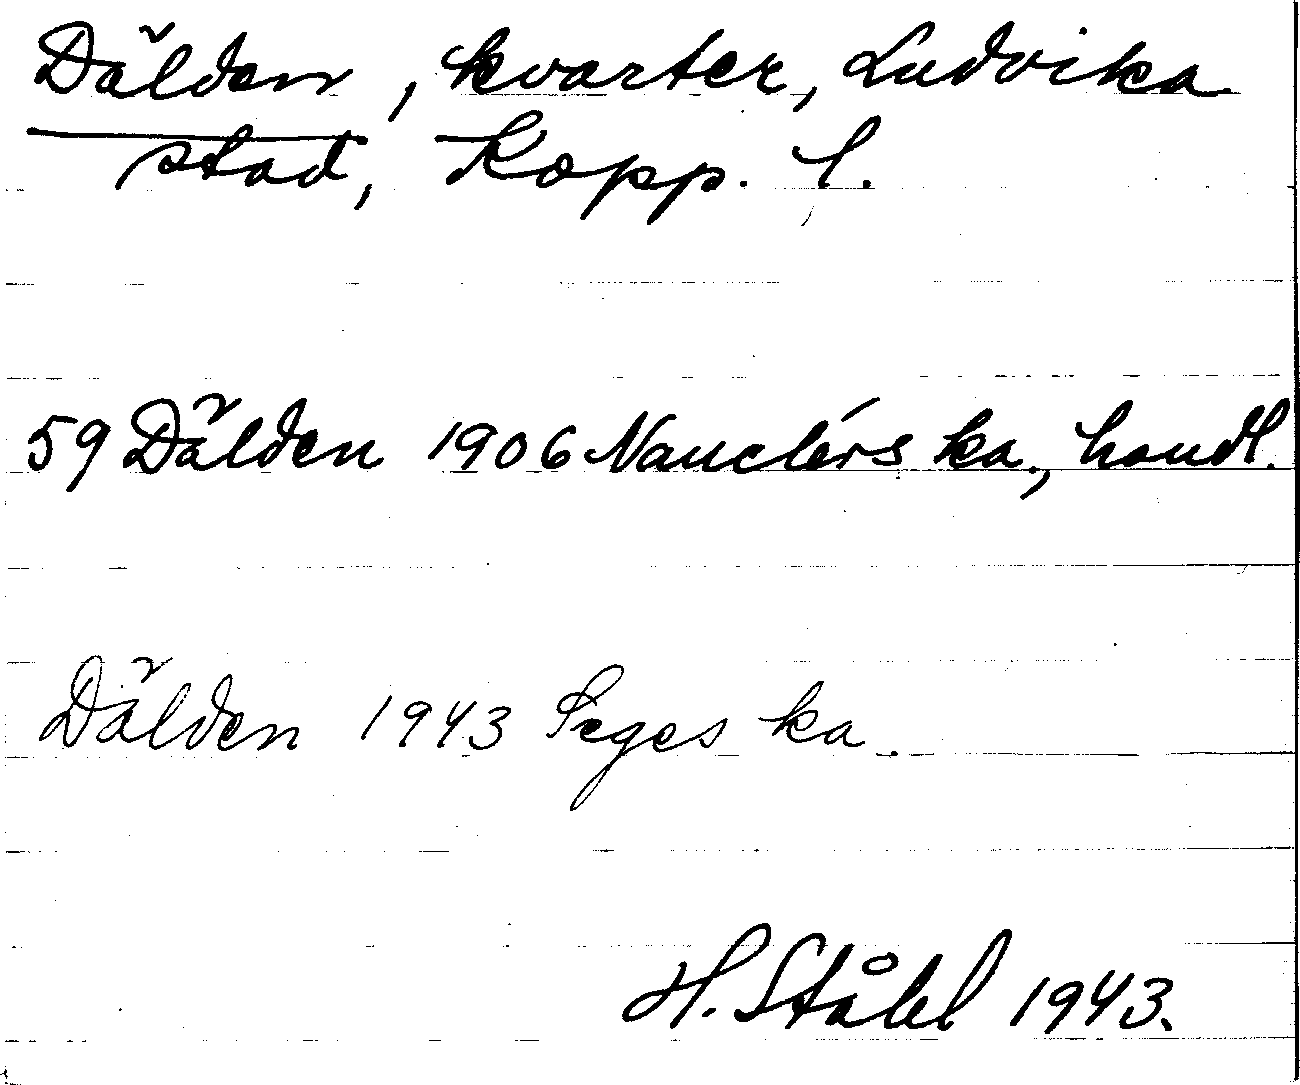 Dälden, kvarter, Ludvika
stad, Kopp. l.
59 Dälden 1906 Nauclérs ka., handl.
Dälden 1943 Seges ka.
H. Ståhl 1943.